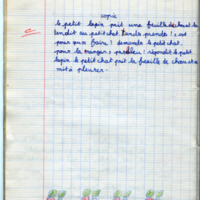 copie
le petit lapin prit une feuille de chou et la
tendit au petit chat. tends prends ! c'est
pour quoi faire ? demanda le petit chat.
pour la manger, pardieu ! répondit le petit
lapin le petit chat prit la feuille de chou et se
mit à pleurer.